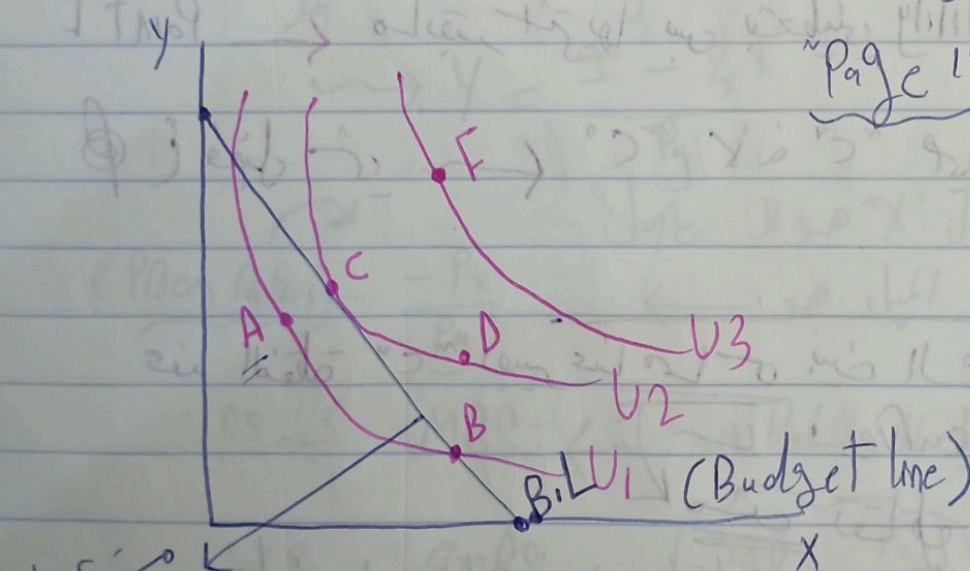 y
"Page 1
F
C
A
D
U3
U2
B
B.L
U1
(Budget line)
X